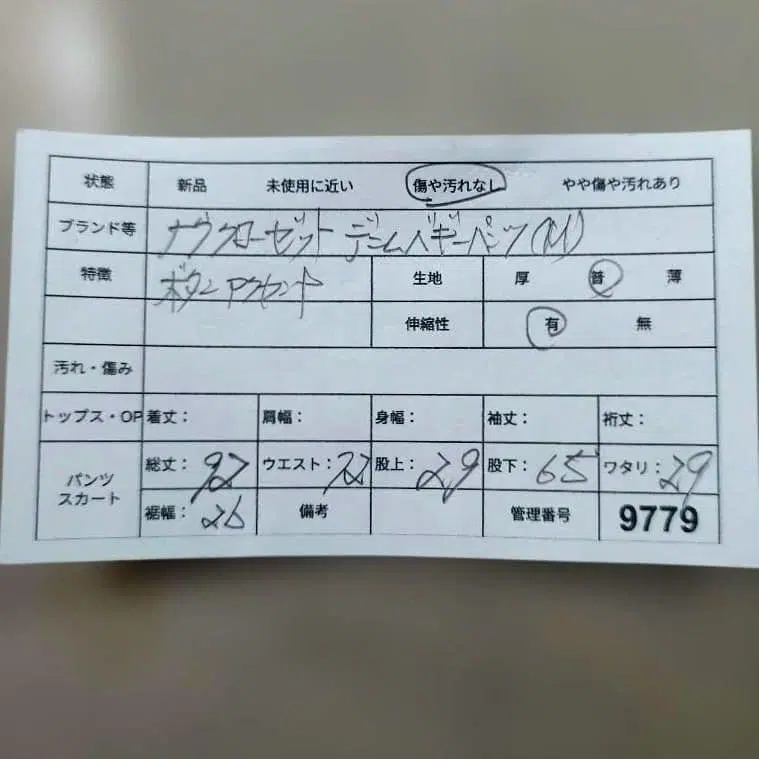 状態 新品 未使用に近い 傷や汚れなし やや傷や汚れあり
ブランド等 ナヴクローゼット デニムバギーパンツ(M)
特徴 ボタンアクセント 生地 厚 普 薄
伸縮性 有 無
汚れ・傷み
トップス・OP 着丈: 肩幅: 身幅: 袖丈: 裄丈:
パンツ スカート 総丈:92 ウエスト:72 股上:29 股下:65 ワタリ:29
裾幅:26 備考 管理番号 9779